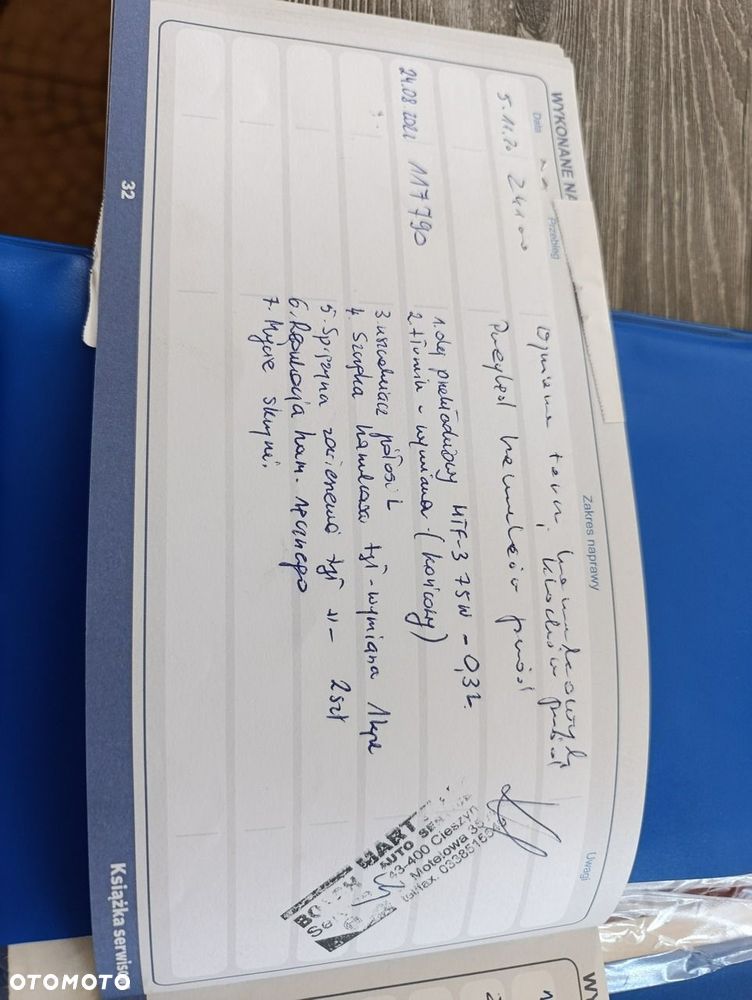 WYKONANE NA
Data
Przebieg
Zakres naprawy
Uwagi
Wymiana tarcz hamulcowych
5.11.20
klocków przód
Przegląd hamulców przód
24.08.2022 117790
1. olej przekładniowy MTF-3 75W - 0,3L.
2. tłumik - wymiana (końcowy)
3 uszczelniacz półosi L
4. Szczęka hamulcowa tył - wymiana 1kpl
5. Sprężyna zawieszenia tył - 2szt
6. Regulacja ham. ręcznego
7. Mycie skrzyni.
MART
AUTO SERVICE
43-400 Cieszyn
Motelowa
tel/fax.
32
Książka serwiso
OTOMOTO